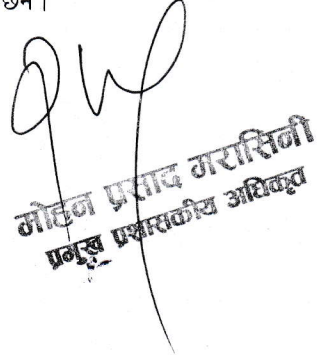 छैन।
मोहन प्रसाद मरासिनी
प्रमुख प्रशासकीय अधिकृत